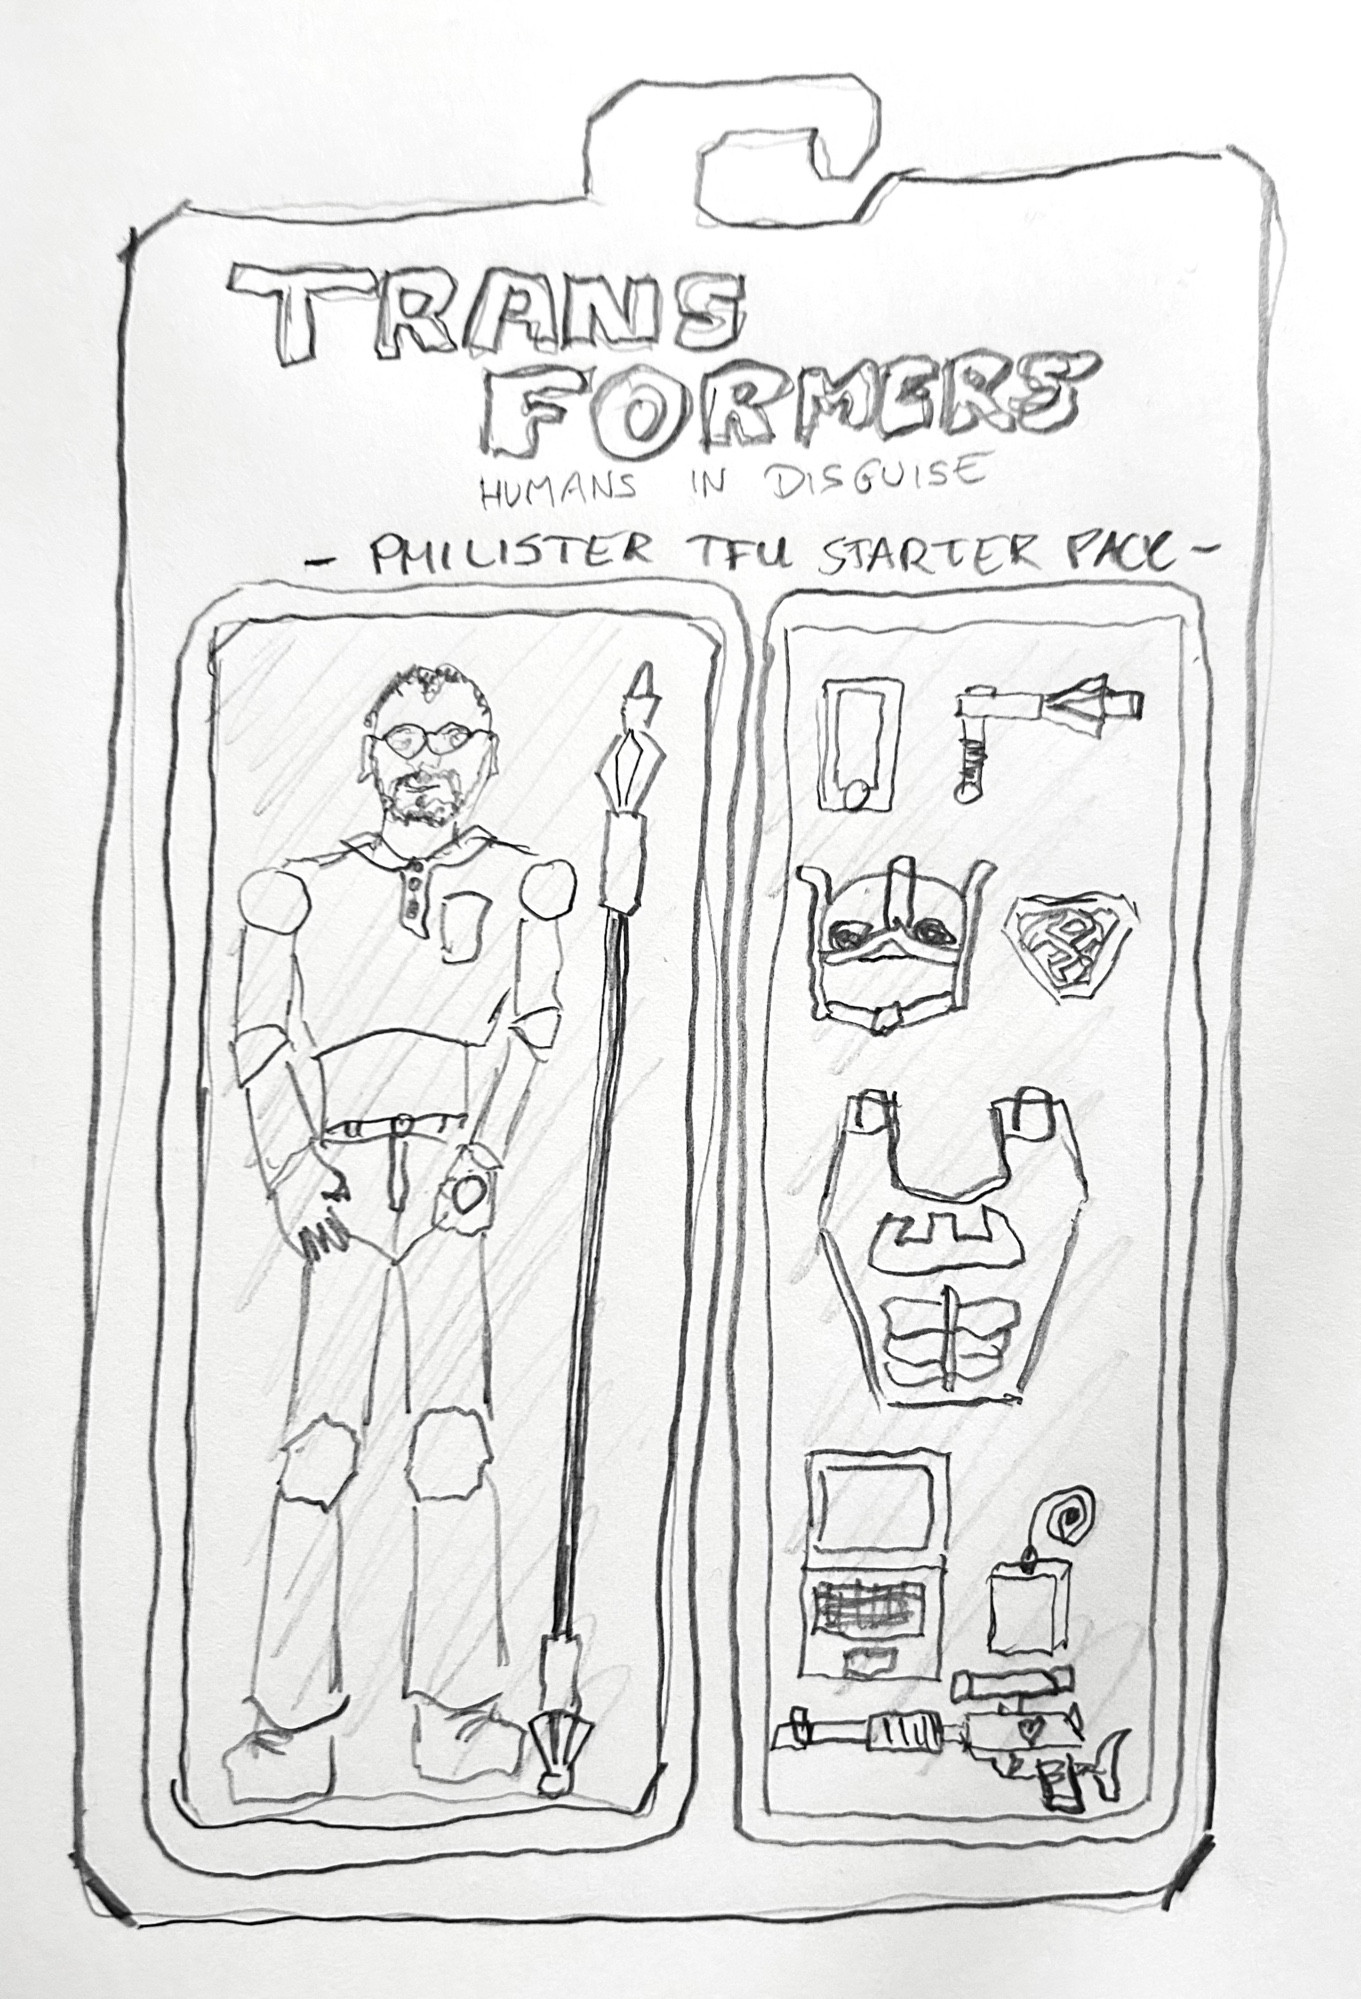 TRANS
FORMERS
HUMANS IN DISGUISE
- PHILISTER TFU STARTER PACK -